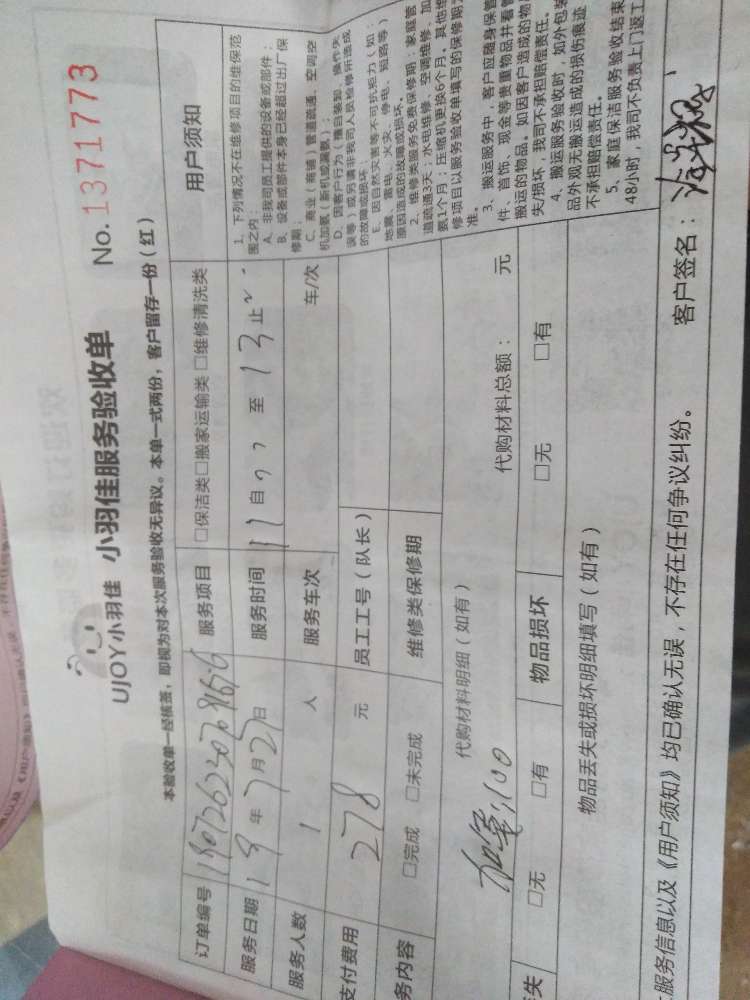 UJOY小羽佳 小羽佳服务验收单 No. 1371773
本验收单一经核签，即视为对本次服务验收无异议。本单一式两份，客户留存一份（红）
订单编号
服务项目 □保洁类□搬家运输类 □维修清洗类
服务日期 18 年 7 月 27 日
服务时间 自 至 13 止
服务人数 1 人
服务车次 车/次
支付费用 278 元
员工工号（队长）
务内容 □完成 □未完成
维修类保修期
代购材料明细（如有） 代购材料总额： 元
加氟100
失 □无 □有
物品损坏 □无 □有
物品丢失或损坏明细填写（如有）
用户须知
1. 下列情况不在维修项目的维保范
围之内：
A. 非我司员工提供的设备或部件；
B. 设备或部件本身已经超过出厂保
修期；
C. 商业（商铺）管道疏通、空调空
机加氨（新机或漏氨）；
D. 因客户行为（擅自装卸、操作失
误等）或另请非我司人员检修所造成
的故障或损坏；
E. 因自然灾害等不可抗拒力（如：
地震、雷电、火灾、停电、短路等）
原因造成的故障或损坏。
2. 维修类服务免费保修期：家庭管
道疏通3天；水电维修、空调维修、加
氨1个月；压缩机更换6个月。其他维
修项目以服务验收单填写的保修期为
准。
3、搬运服务中，客户应随身保管
件、首饰、现金等贵重物品并看管
搬运的物品。如因客户造成的物
失/损坏，我司不承担赔偿责任。
4、搬运服务验收时，如外包装
品外观无搬运造成的损伤痕迹
不承担赔偿责任。
5、家庭保洁服务验收结束
48小时，我司不负责上门返工
服务信息以及《用户须知》均已确认无误，不存在任何争议纠纷。 客户签名：